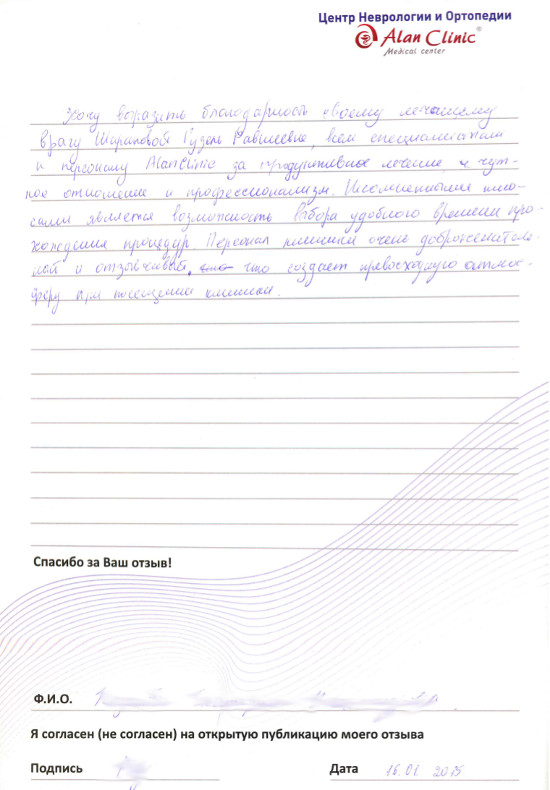 Центр Неврологии и Ортопедии
Alan Clinic®
Medical center
Хочу выразить благодарность своему лечащему
врагу Шариповой Гузель Равилевне, всем специалистам
и персоналу AlanClinic за продуктивное лечение, чут-
кое отношение и профессионализм. Несомненным плю-
сами является возможность выбора удобного времени про-
хождения процедур. Персонал клиники очень доброжелатель-
ный и отзывчивый, что создает превосходную атмос-
феру при посещении клиники.
Спасибо за Ваш отзыв!
Ф.И.О.
Я согласен (не согласен) на открытую публикацию моего отзыва
Подпись Дата 16.01 2015